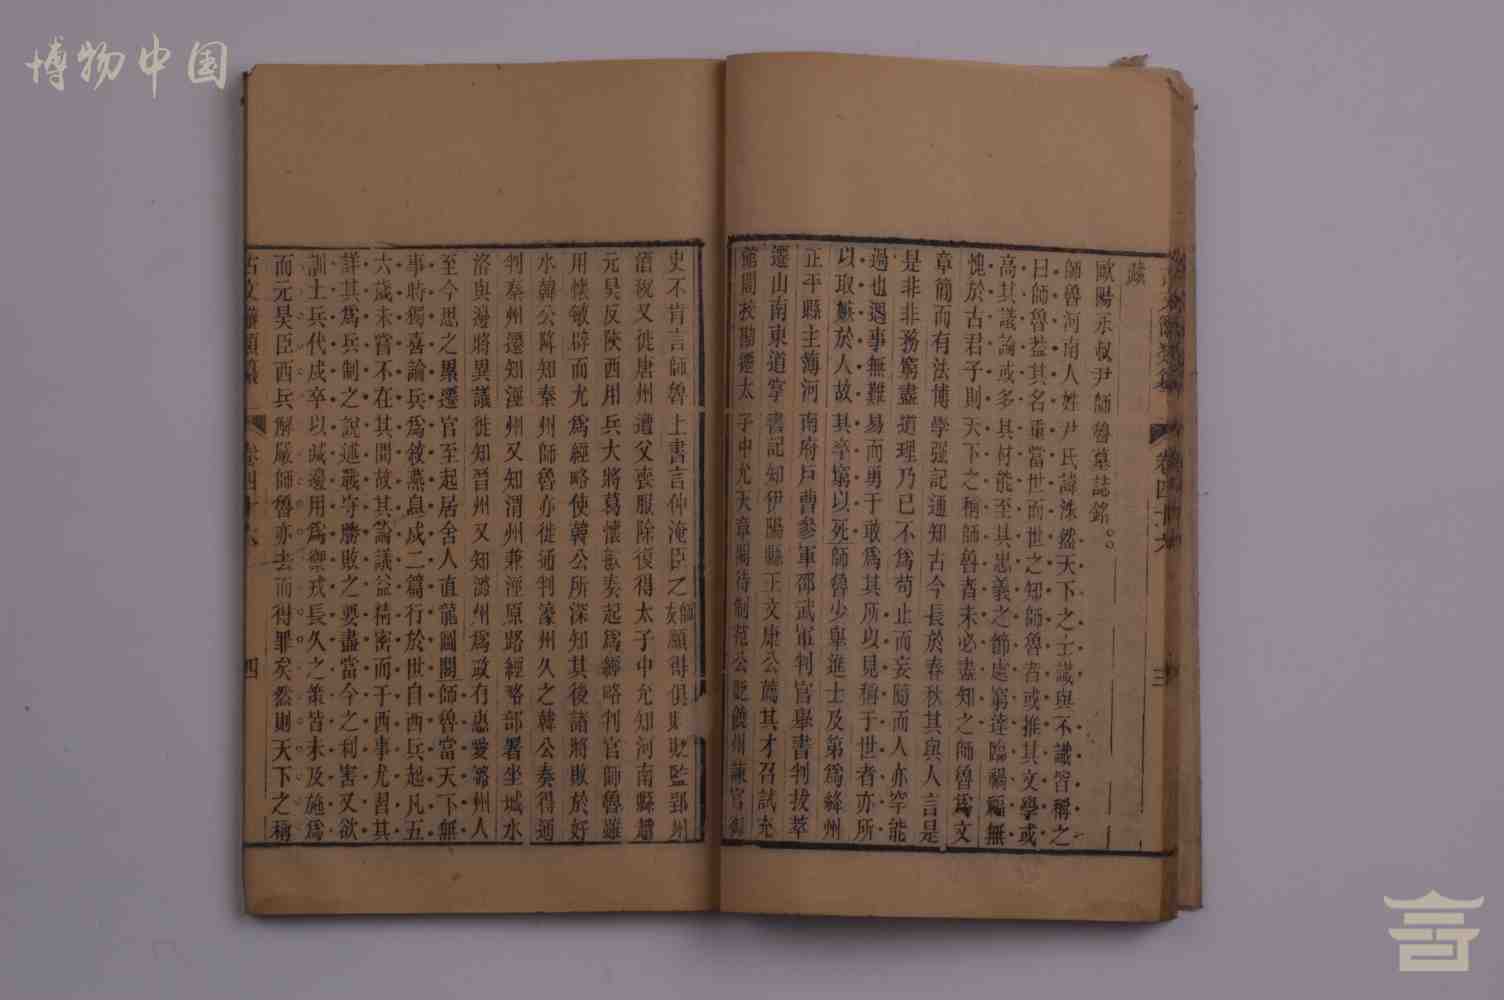 博物中国
古文辭類纂 卷四十六 三
疏
歐陽永叔尹師魯墓誌銘
師魯河南人姓尹氏諱洙然天下之士識與不識皆稱之
曰師魯蓋其名重當世而世之知師魯者或推其文學或
高其議論或多其材能至其忠義之節處窮達臨禍福無
愧於古君子則天下之稱師魯者未必盡知之師魯爲文
章簡而有法博學强記通知古今長於春秋其與人言是
是非非務窮盡道理乃已不爲苟止而妄隨而人亦罕能
過也遇事無難易而勇于敢爲其所以見稱于世者亦所
以取嫉於人故其卒窮以死師魯少舉進士及第爲絳州
正平縣主薄河南府戶曹參軍邵武軍判官舉書判拔萃
遷山南東道掌書記知伊陽縣王文康公薦其才召試充
館閣校勘遷太子中允天章閣待制范公貶饒州諫官御
史不肯言師魯上書言仲淹臣之師友願得俱貶貶監郢州
酒稅又徙唐州遭父喪服除復得太子中允知河南縣趙
元昊反陝西用兵大將葛懷敏奏起爲經略判官師魯雖
用懷敏辟而尤爲經略使韓公所深知其後諸將敗於好
水韓公降知秦州師魯亦徙通判濠州久之韓公奏得通
判秦州遷知涇州又知渭州兼涇原路經略部署坐城水
洛與邊將異議徙知晉州又知潞州爲政有惠愛潞州人
至今思之累遷官至起居舍人直龍圖閣師魯當天下無
事時獨喜論兵爲敘燕息戍二篇行於世自西兵起凡五
六歲未嘗不在其間故其論議益精密而于西事尤習其
詳其爲兵制之說述戰守勝敗之要盡當今之利害又欲
訓土兵代戍卒以減邊用爲禦戎長久之策皆未及施爲
而元昊臣西兵解嚴師魯亦去而得罪矣然則天下之稱
古文辭類纂 卷四十六 四